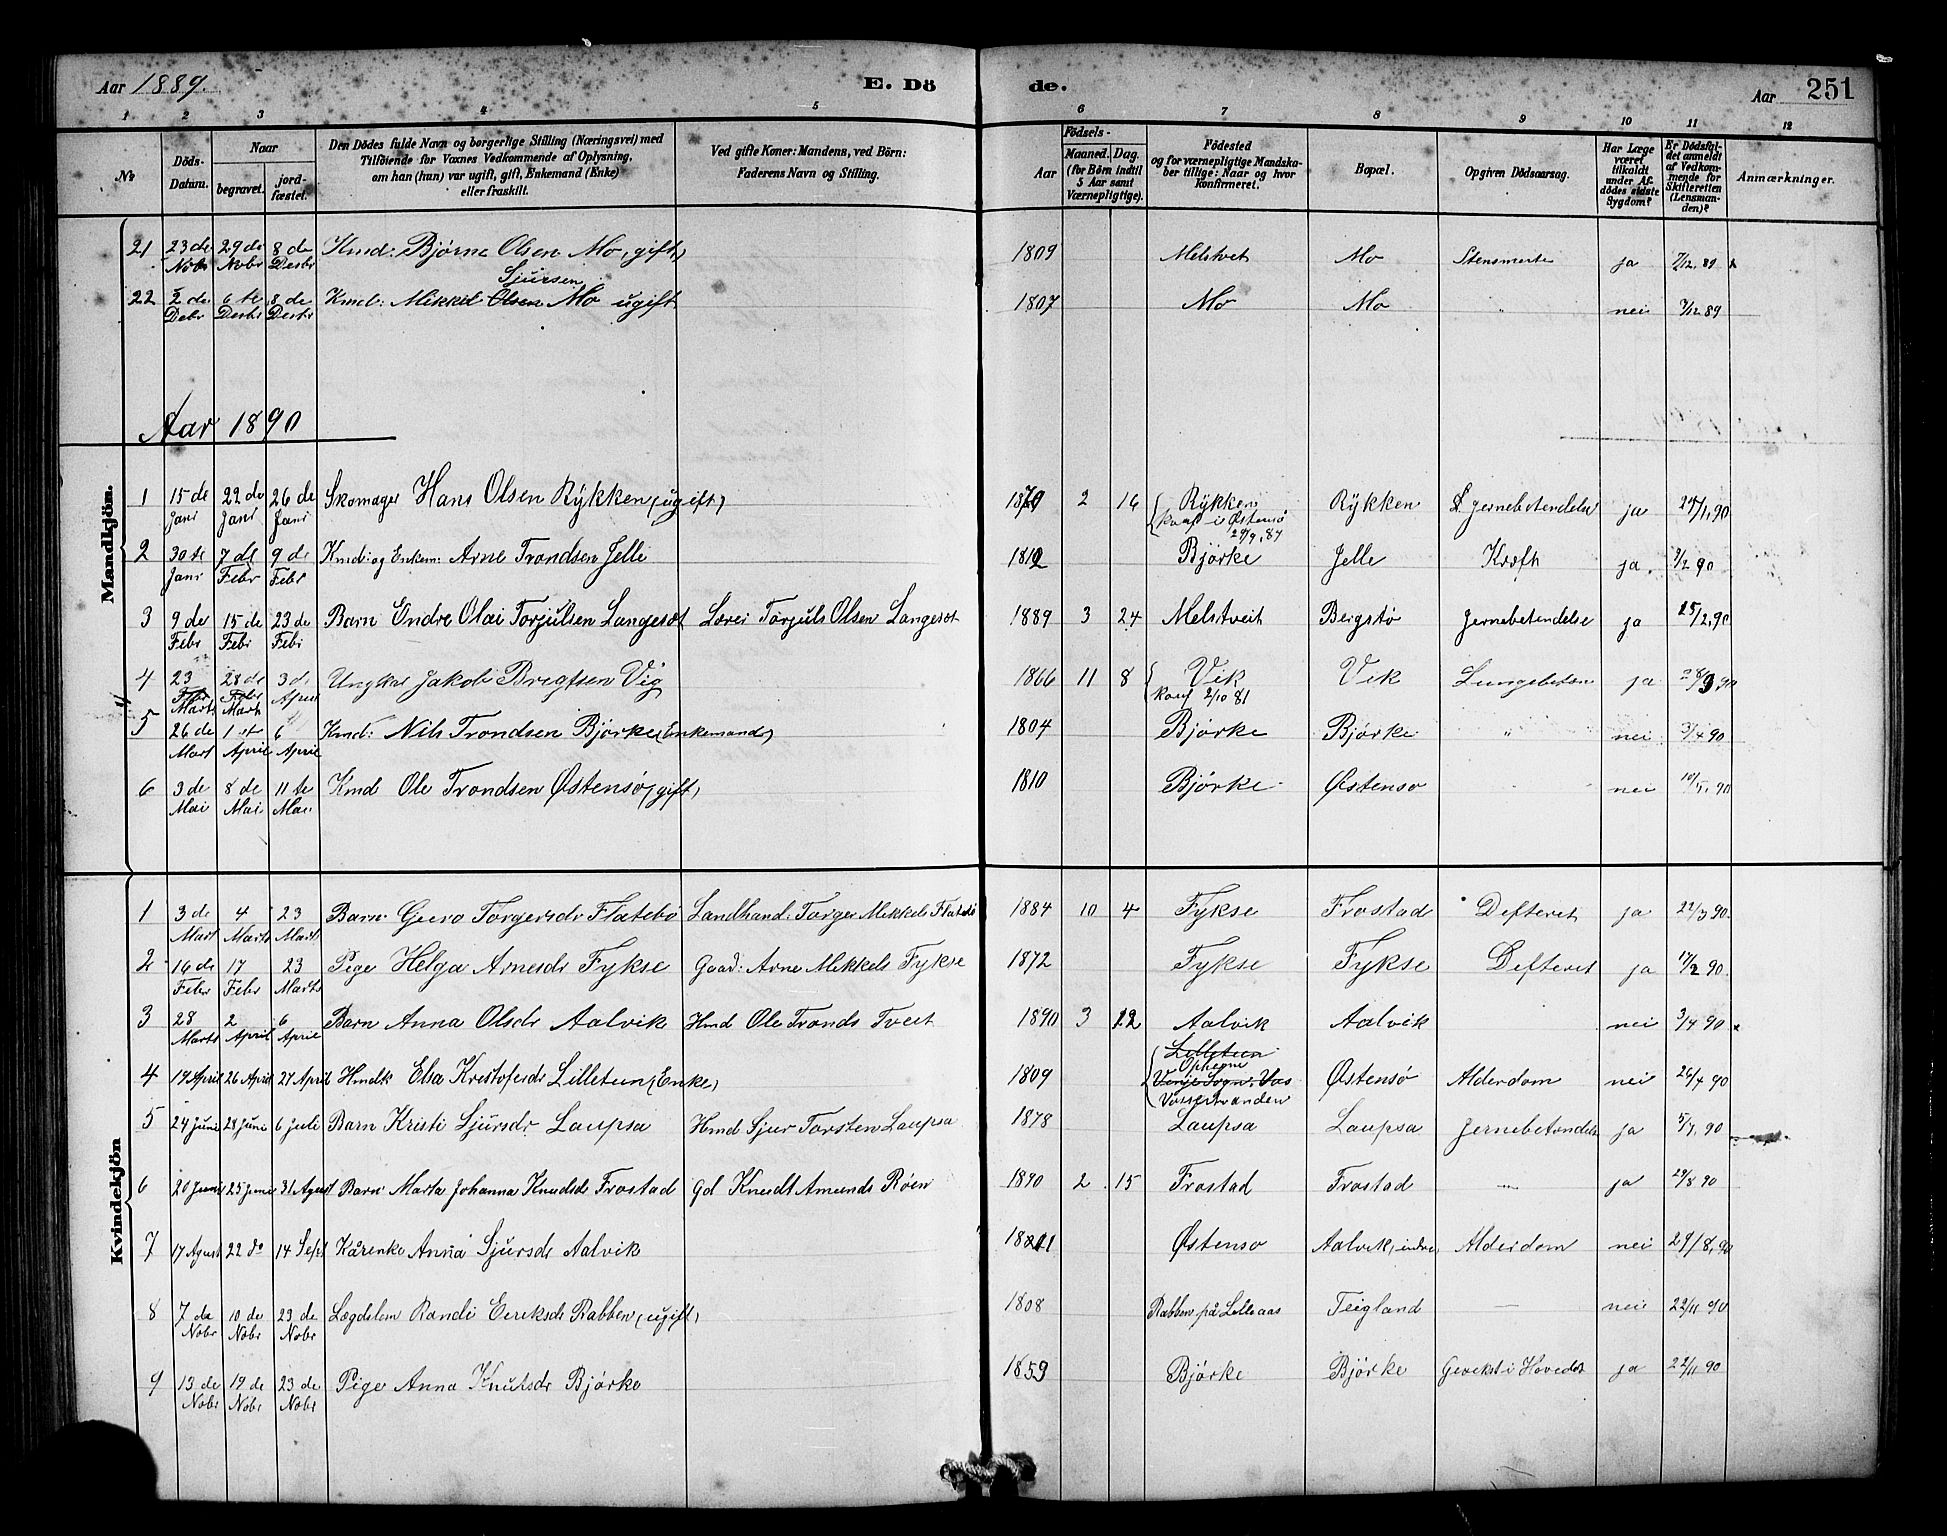 Aar 1889. E. Dö de. Aar 251
1 2 3 4 5 6 7 8 9 10 11 12
No
Döds-Datum.
Naar
begravet.
jord-fæstet.
Den Dödes fulde Navn og borgerlige Stilling (Næringsvei) med
Tilföiende for Voxnes Vedkommende af Oplysning,
om han (hun) var ugift, gift, Enkemand (Enke)
eller fraskilt.
Ved gifte Koner: Mandens, ved Börn:
Faderens Navn og Stilling.
Födsels-
Aar
Maaned. Dag.
(for Börn indtil
5 Aar samt
Værnepligtige).
Födested
og for værnepligtige Mandska-
ber tillige: Naar og hvor
konfirmeret.
Bopæl.
Opgiven Dödsaarsag.
Har Læge
været
tilkaldt
under Af-
dödes sidste
Sygdom?
Er Dödsfal-
det anmeldt
af Vedkom-
mende for
Skifteretten
(Lensman-
den)?
Anmærkninger.
21 23 de Nobr 29 de Nobr 8 de Desbr Kmd: Bjørne Olsen Mo, gift) 1809 Melstvet Mo Stensmerte ja 7/12.89
Sjursen
22 2 de Debr 6 te Desbr 8 de Desbr Kmd: Mikkel Olsen Mo ugift 1807 Mo Mo " nei 7/12 89
Aar 1890
Mandkjön.
1 15 de Janr 22 de Janr 26 de Janr Skomager Hans Olsen Rykken (ugift) 1870 2 16 Rykken Rykken jernebetendelse ja 24/1.90
Konf i Østensö
2 30 te Janr 7 de Febr 9 de Febr Kmd: og Enkem: Arne Trondsen Jelle 1812 Bjørke Jelle Kræft ja 9/2 90
3 9 de Febr 15 de Febr 23 de Febr Barn Endre Olai Torjulsen Langesæt Lærer Torjuls Olsen Langesæt 1889 3 24 Melstveit Bergstø Jernebetendelse ja 15/2.90
4 23 Febr Marts 28 de Febr Marts 3 de April Ungkar Jakob Brigtsen Vig 1866 11 8 Vik Vik Lungebeten ja 28/3 90
Konf 2/10 81
5 26 de Mart 1 st April 6 April Kmd: Nils Trondsen Bjørke (Enkemand) 1804 Bjørke Bjørke " nei 3/4 90
6 3 de Mai 8 de Mai 11 te Mai Kmd Ole Trondsen Østensø (gift) 1810 Bjørke Østensø nei 10/5.90
Kvindekjön
1 3 de Mart 4 Marts 23 Marts Barn Guro Torgersdr Flatebø Landhand: Torger Mikkels Flatebø 1884 10 4 Fykse Frostad Defteret ja 22/3 90
2 16 de Febr 17 Febr 23 Marts Pige Helga Arnesdr Fykse Gaad: Arne Mikkels Fykse 1872 Fykse Fykse Defteret ja 17/2 90
3 28 Marts 2 April 6 April Barn Anna Olsdr Aalvik Hmd Ole Tronds Tveit 1890 3 12 Aalvik Aalvik nei 3/4 90
4 19 April 26 April 27 April Hmdk Elsa Kristofersdr Lilletun (Enke) 1809 Lilletun Opheim Vinje Sogn. Vos Vossestranden Østensø Alderdom nei 26/4 90
5 24 Juni 28 Juni 6 Juli Barn Kristi Sjursdr Laupsa Hmd Sjur Torsten Laupsa 1878 Laupsa Laupsa Jernebetendels ja 5/7.90
6 20 Juni 25 Juni 31 Agust Barn Marta Johanna Knudsdr Frostad Gd Knudt Amunds Røen 1890 2 15 Frostad Frostad — ja 29/8 90
7 17 Agust 22 do 14 Sept Kårenke Anna Sjursdr Aalvik Østensø Aalvik, indre Alderdom nei 29/8,90
8 7 de Nobr 10 de Nobr 23 de Nobr Lægdslem Randi Eeriksdr Rabben (ugift) 1808 Rabben på Lilleaas Teigland — nei 22/11 90
9 13 de Nobr 19 de Nobr 23 de Nobr Pige Anna Knutsdr Bjørke 1859 Bjørke Bjørke Gevekst i Hovedet ja 22/11 90